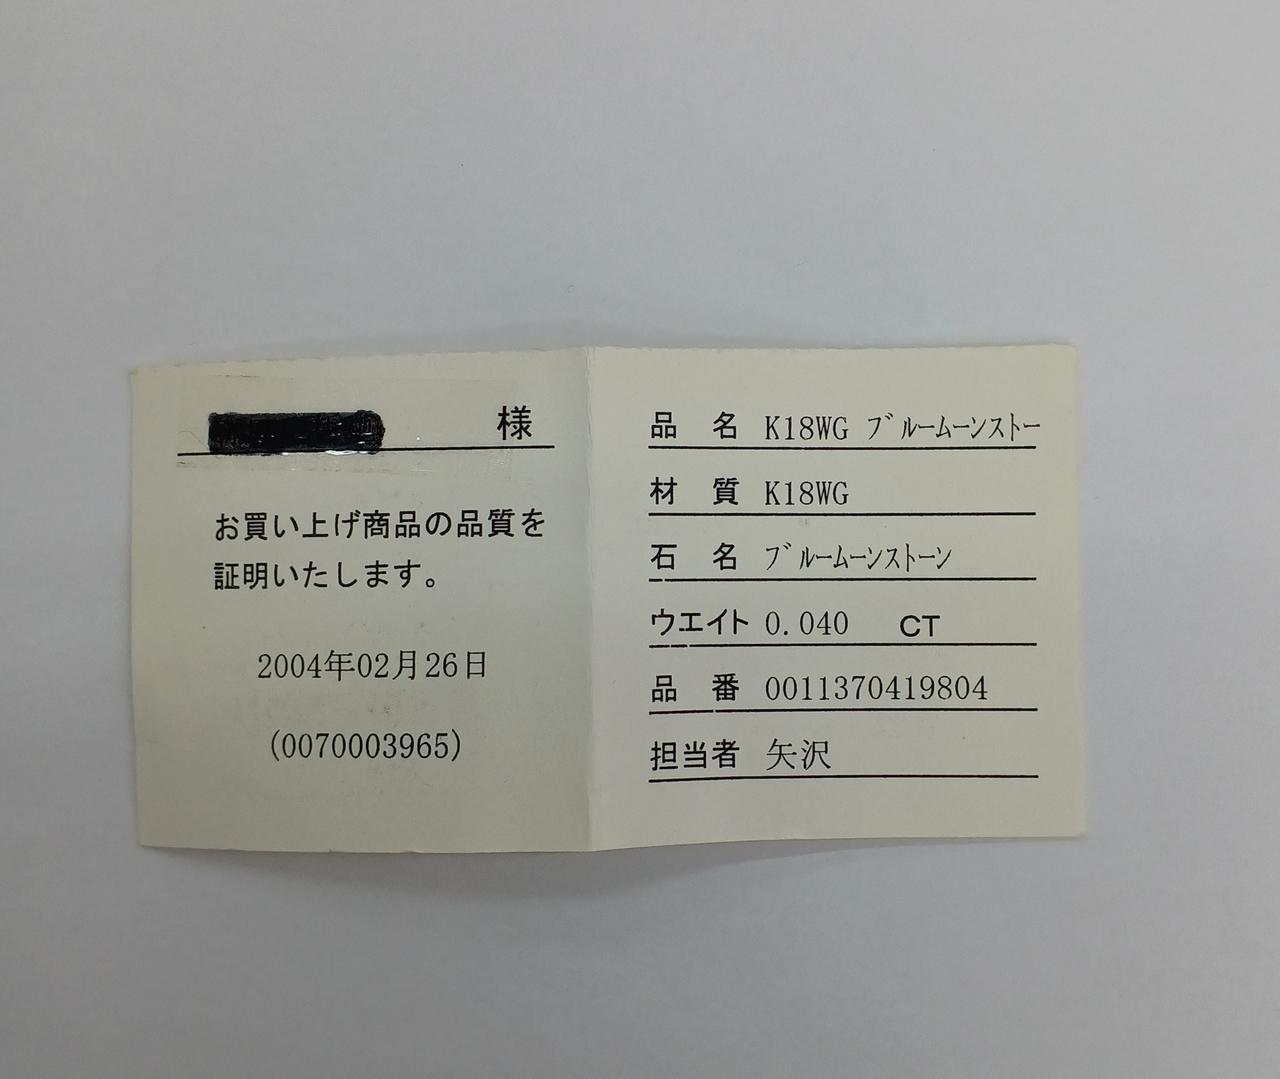 様
お買い上げ商品の品質を
証明いたします。
2004年02月26日
(0070003965)
品 名 K18WG ﾌﾞﾙｰﾑｰﾝｽﾄｰ
材 質 K18WG
石 名 ﾌﾞﾙｰﾑｰﾝｽﾄｰﾝ
ウエイト 0.040 CT
品 番 0011370419804
担当者 矢沢